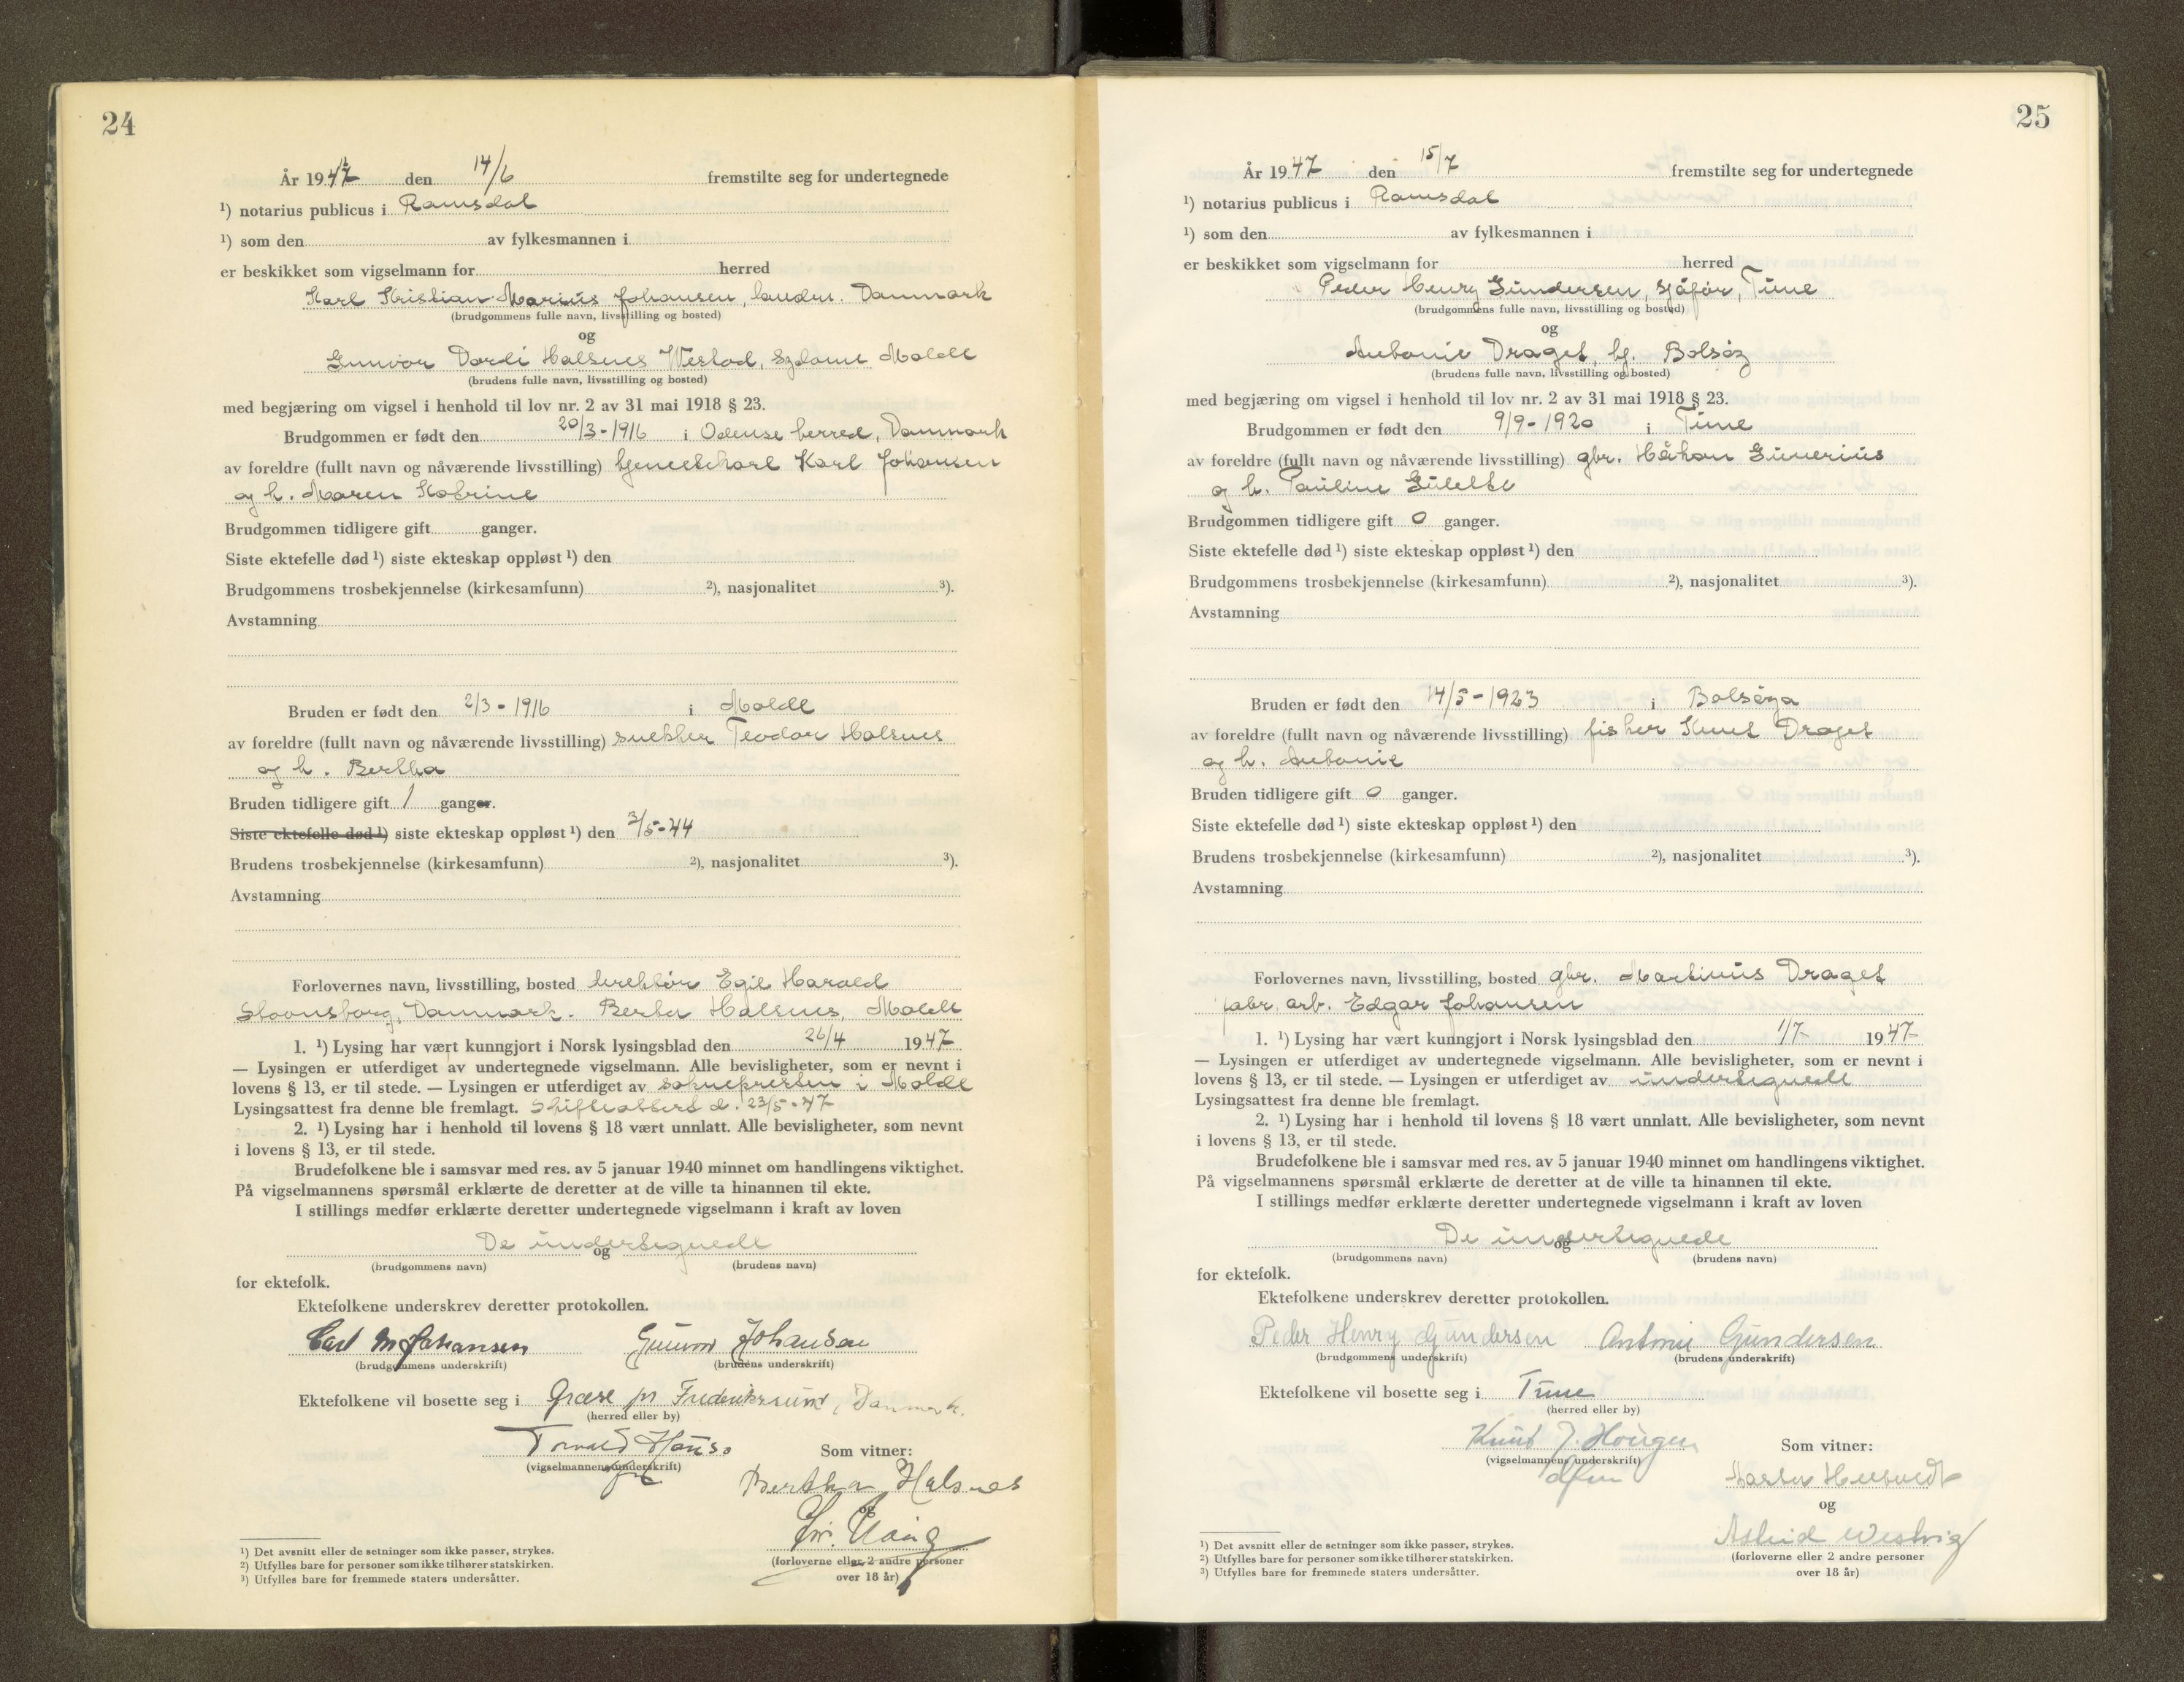 24
År 1947 den 14/6 fremstilte seg for undertegnede
¹) notarius publicus i Romsdal
¹) som den av fylkesmannen i
er beskikket som vigselmann for herred
Karl Kristian Marius Johansen, landm. Danmark
(brudgommens fulle navn, livsstilling og bosted)
og
Gunvor Dordi Halsnes Westad, sydame Molde
(brudens fulle navn, livsstilling og bosted)
med begjæring om vigsel i henhold til lov nr. 2 av 31 mai 1918 § 23.
Brudgommen er født den 20/3-1916 i Odense herred, Danmark
av foreldre (fullt navn og nåværende livsstilling) Karl Johansen
og h. Maren Katrine
Brudgommen tidligere gift ganger.
Siste ektefelle død ¹) siste ekteskap oppløst ¹) den
Brudgommens trosbekjennelse (kirkesamfunn) ²), nasjonalitet ³).
Avstamning
Bruden er født den 2/3-1916 i Molde
av foreldre (fullt navn og nåværende livsstilling) snekker Teodor Halsnes
og h. Bertha
Bruden tidligere gift 1 ganger.
Siste ektefelle død ¹) siste ekteskap oppløst ¹) den 2/5-44
Brudens trosbekjennelse (kirkesamfunn) ²), nasjonalitet ³).
Avstamning
Forlovernes navn, livsstilling, bosted direktør Egil Harald
Danmark. Berta Halsnes, Molde
1. ¹) Lysing har vært kunngjort i Norsk lysingsblad den 26/4 1947
— Lysingen er utferdiget av undertegnede vigselmann. Alle bevisligheter, som er nevnt i
lovens § 13, er til stede. — Lysingen er utferdiget av soknepresten i Molde
Lysingsattest fra denne ble fremlagt. Skifteattest d. 23/5-47
2. ¹) Lysing har i henhold til lovens § 18 vært unnlatt. Alle bevisligheter, som nevnt
i lovens § 13, er til stede.
Brudefolkene ble i samsvar med res. av 5 januar 1940 minnet om handlingens viktighet.
På vigselmannens spørsmål erklærte de deretter at de ville ta hinannen til ekte.
I stillings medfør erklærte deretter undertegnede vigselmann i kraft av loven
De undertegnede
og
(brudgommens navn) (brudens navn)
for ektefolk.
Ektefolkene underskrev deretter protokollen.
Carl M Johansen Gunvor Johansen
(brudgommens underskrift) (brudens underskrift)
Ektefolkene vil bosette seg i Græse pr Frederikssund, Danmark.
(herred eller by)
Som vitner:
(vigselmannens underskrift)
Bertha Halsnes
og
(forloverne eller 2 andre personer
over 18 år)
¹) Det avsnitt eller de setninger som ikke passer, strykes.
²) Utfylles bare for personer som ikke tilhører statskirken.
³) Utfylles bare for fremmede staters undersåtter.
25
År 1947 den 15/7 fremstilte seg for undertegnede
¹) notarius publicus i Romsdal
¹) som den av fylkesmannen i
er beskikket som vigselmann for herred
Peder Henry Gundersen, sjåfør, Tune
(brudgommens fulle navn, livsstilling og bosted)
og
Antonie Draget, hj. Bolsøy
(brudens fulle navn, livsstilling og bosted)
med begjæring om vigsel i henhold til lov nr. 2 av 31 mai 1918 § 23.
Brudgommen er født den 9/9-1920 i Tune
av foreldre (fullt navn og nåværende livsstilling) gbr. Håkon Gunerius
og h. Pauline
Brudgommen tidligere gift 0 ganger.
Siste ektefelle død ¹) siste ekteskap oppløst ¹) den
Brudgommens trosbekjennelse (kirkesamfunn) ²), nasjonalitet ³).
Avstamning
Bruden er født den 14/5-1923 i Bolsøya
av foreldre (fullt navn og nåværende livsstilling) fisker Knut Draget
og h. Antonie
Bruden tidligere gift 0 ganger.
Siste ektefelle død ¹) siste ekteskap oppløst ¹) den
Brudens trosbekjennelse (kirkesamfunn) ²), nasjonalitet ³).
Avstamning
Forlovernes navn, livsstilling, bosted gbr. Martinus Draget
fabr. arb. Edgar Johansen
1. ¹) Lysing har vært kunngjort i Norsk lysingsblad den 1/7 1947
— Lysingen er utferdiget av undertegnede vigselmann. Alle bevisligheter, som er nevnt i
lovens § 13, er til stede. — Lysingen er utferdiget av undertegnede
Lysingsattest fra denne ble fremlagt.
2. ¹) Lysing har i henhold til lovens § 18 vært unnlatt. Alle bevisligheter, som nevnt
i lovens § 13, er til stede.
Brudefolkene ble i samsvar med res. av 5 januar 1940 minnet om handlingens viktighet.
På vigselmannens spørsmål erklærte de deretter at de ville ta hinannen til ekte.
I stillings medfør erklærte deretter undertegnede vigselmann i kraft av loven
De undertegnede
og
(brudgommens navn) (brudens navn)
for ektefolk.
Ektefolkene underskrev deretter protokollen.
Peder Henry Gundersen Antonie Gundersen
(brudgommens underskrift) (brudens underskrift)
Ektefolkene vil bosette seg i Tune
(herred eller by)
Knut J. Hougen
Som vitner:
(vigselmannens underskrift)
og
Astrid Westvig
(forloverne eller 2 andre personer
over 18 år)
¹) Det avsnitt eller de setninger som ikke passer, strykes.
²) Utfylles bare for personer som ikke tilhører statskirken.
³) Utfylles bare for fremmede staters undersåtter.